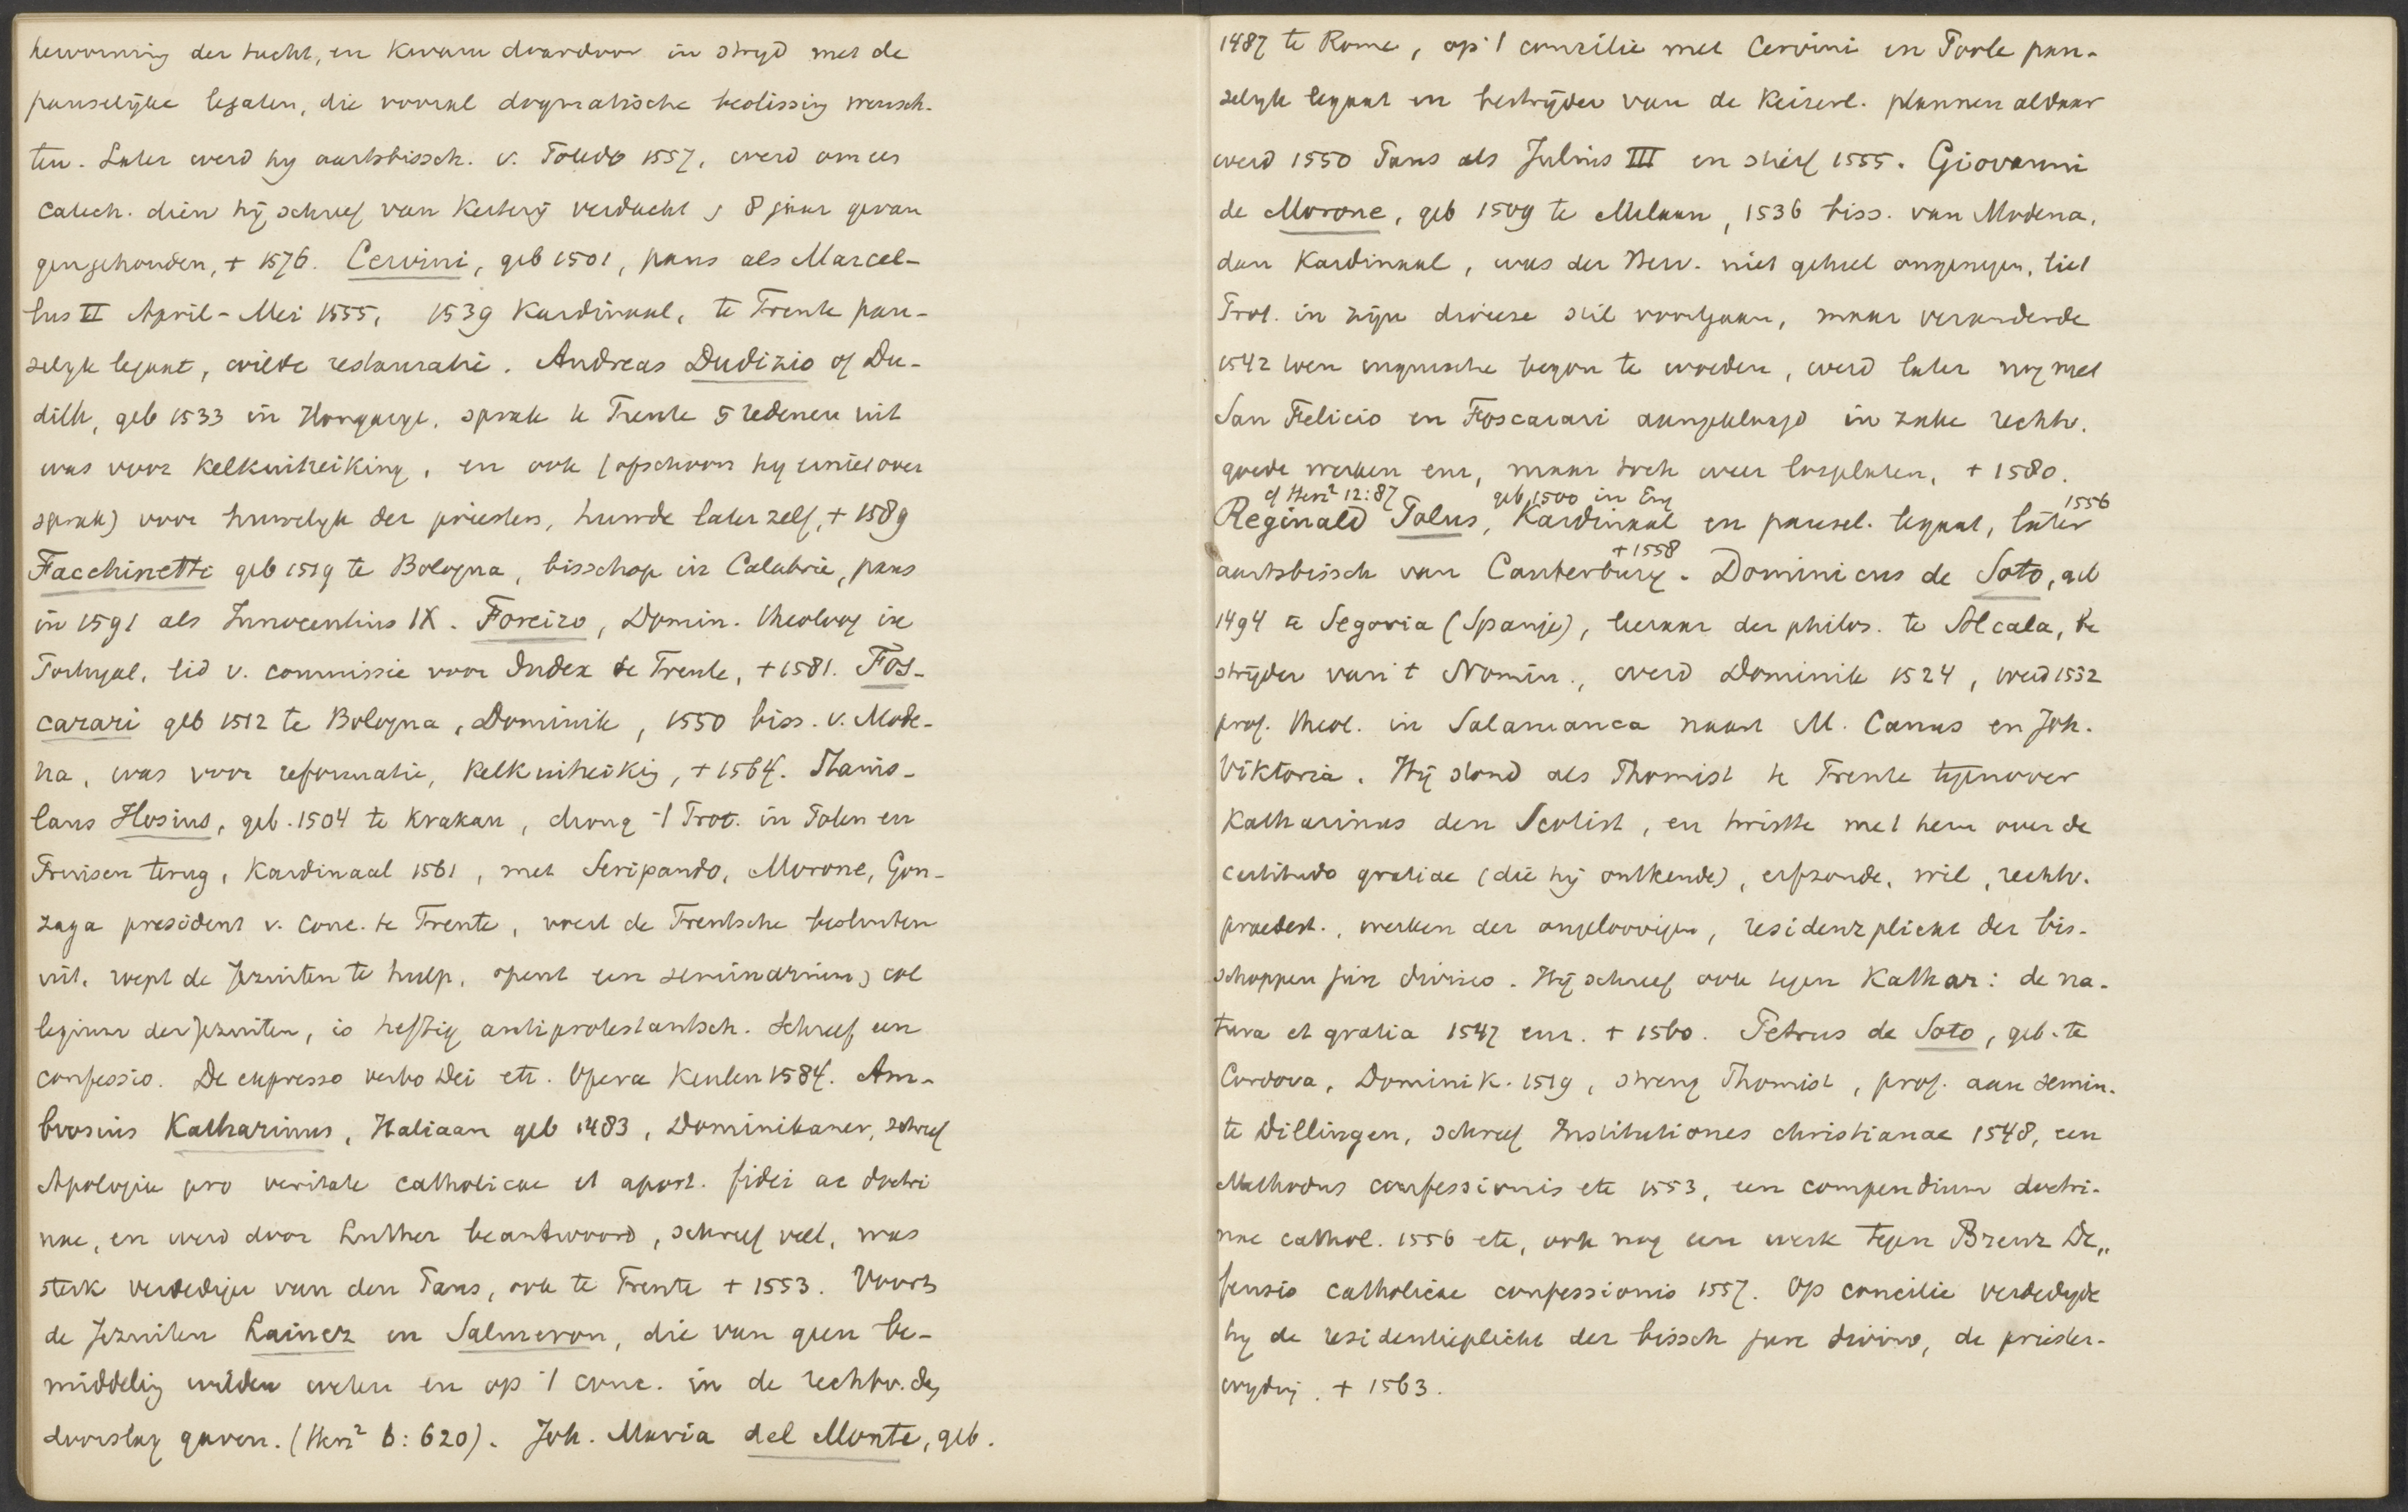 hervorming der tucht, en kwam daardoor in stryd met de
pauselijke legaten, die vooral dogmatische beslissing wensch-
ten. Later werd hy aartsbissch. v. Toledo 1557, werd om een
catech. dien hij schreef van ketterij verdacht, 8 jaar gevan
gengehouden, + 1576. Cervini, geb 1501, paus als Marcel-
lus II April-Mei 1555, 1539 Kardinaal, te Trente pau-
selyk legaat, wilde restauratie. Andreas Dudizio of Du-
dith, geb 1533 in Hongarye, sprak te Trente 5 redenen uit
was voor kelkuitreiking, en ook (ofschoon hy er niet over
sprak) voor huwelyk der priesters, huwde later zelf, + 1589
Facchinetti geb 1519 te Bologna, bisschop in Calabrie, paus
in 1591 als Innocentius IX. Foreizo, Domin. theoloog in
Portugal, lid v. commissie voor Index te Trente, + 1581. Fos-
carari geb 1512 te Bologna, Dominik, 1550 biss. v. Mode-
na, was voor reformatie, kelkuitreikig, + 1564. Stanis-
laus Hosius, geb. 1504 te Krakau, drong 't Prot. in Polen en
Pruisen terug, Kardinaal 1561, met Seripando, Morone, Gon-
zaga president v. conc. te Trente, voert de Trentsche besluiten
uit, roept de Jezuiten te hulp, opent een seminarium, col
legium der Jezuiten, is heftig antiprotestantsch. Schreef een
confessio. De expresso verbo Dei etc. Opera Keulen 1584. Am-
brosius Katharinus, Italiaan geb 1483, Dominikaner, schreef
Apologia pro veritate catholicae et apost. fidei ac doctri
nae, en werd door Luther beantwoord, schreef veel, was
sterk verdediger van den Paus, ook te Trente + 1553. Voorts
de Jezuiten Lainez en Salmeron, die van geen be-
middelig wilden weten en op 't conc. in de rechtv. den
doorslag gaven. (Herz² 6: 620). Joh. Maria del Monte, geb.
1487 te Rome, op 't conzilie met Cervini en Poole pau-
selyk legaat en bestrijder van de Keizerl. plannen aldaar
werd 1550 Paus als Julius III en stierf 1555. Giovanni
de Morone, geb 1509 te Milaan, 1536 biss. van Modena,
dan Kardinaal, was der Herv. niet geheel ongenegen, liet
Prot. in zijn diocese stil voortgaan, maar veranderde
1542 toen inquisitie begon te woeden, werd later nog met
San Felicio en Foscarari aangeklaagd in zake rechtv.
goede werken enz, maar toch weer losgelaten, + 1580.
cf Herz² 12:87 geb 1500 in Eng 1556
Reginald Polus, Kardinaal en pausel. legaat, later
+ 1558
aartsbissch van Canterbury. Dominicus de Soto, geb
1494 te Segovia (Spanje), leeraar der philos. te Alcala, be
strijder van 't Nomin., werd Dominik 1524, werd 1532
prof. theol. in Salamanca naast M. Canus en Joh.
Viktoria. Hij stond als Thomist te Trente tegenover
Katharinus den Scotist, en twistte met hem over de
certitudo gratiae (die hij ontkende), erfzonde, wil, rechtv.
praedest., werken der ongeloovigen, residenzplicht der bis-
schoppen jure divino. Hij schreef ook tegen Kathar: de na-
tura et gratia 1547 enz. + 1560. Petrus de Soto, geb. te
Cordova, Dominik. 1519, streng Thomist, prof. aan semin.
te Dillingen, schreef Institutiones christianae 1548, een
Methodus confessionis etc 1553, een compendium doctri-
nae cathol. 1556 etc, ook nog een werk tegen Brenz De„
fensio catholicae confessionis 1557. Op concilie verdedigde
hy de residentieplicht der bissch jure divino, de priester-
wyding. + 1563.